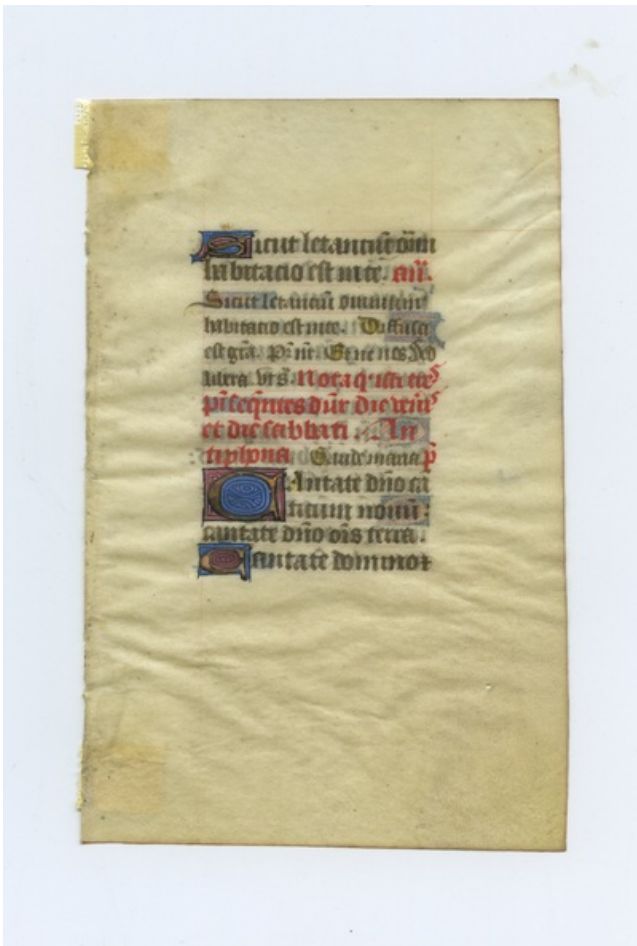 Sicut letantiū oīm
habitacio est in te. añ.
Sicut letanciū omnium
habitatio est in te. Diffusa
est grā. Ps. Et ne nos Sed
libera. Nota q isti
ps sequentes dūr die
et die sabbati. An
tiphona Gaude maria
Cantate dño ca
ticum nouū:
cantate dño oīs terra.
Cantate domino